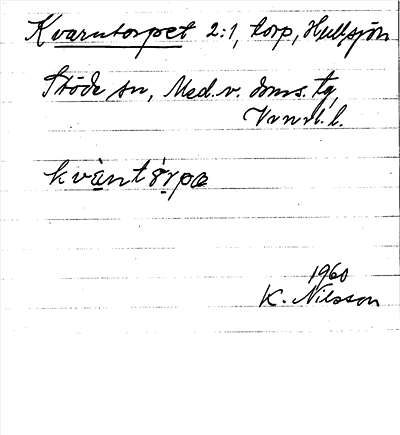 Kvarntorpet 2:1, torp, Hullsjön
Stöde sn, Med.v. doms. tg,
Vnrl. l.
kvà̀ntórpæ
1960
K. Nilsson